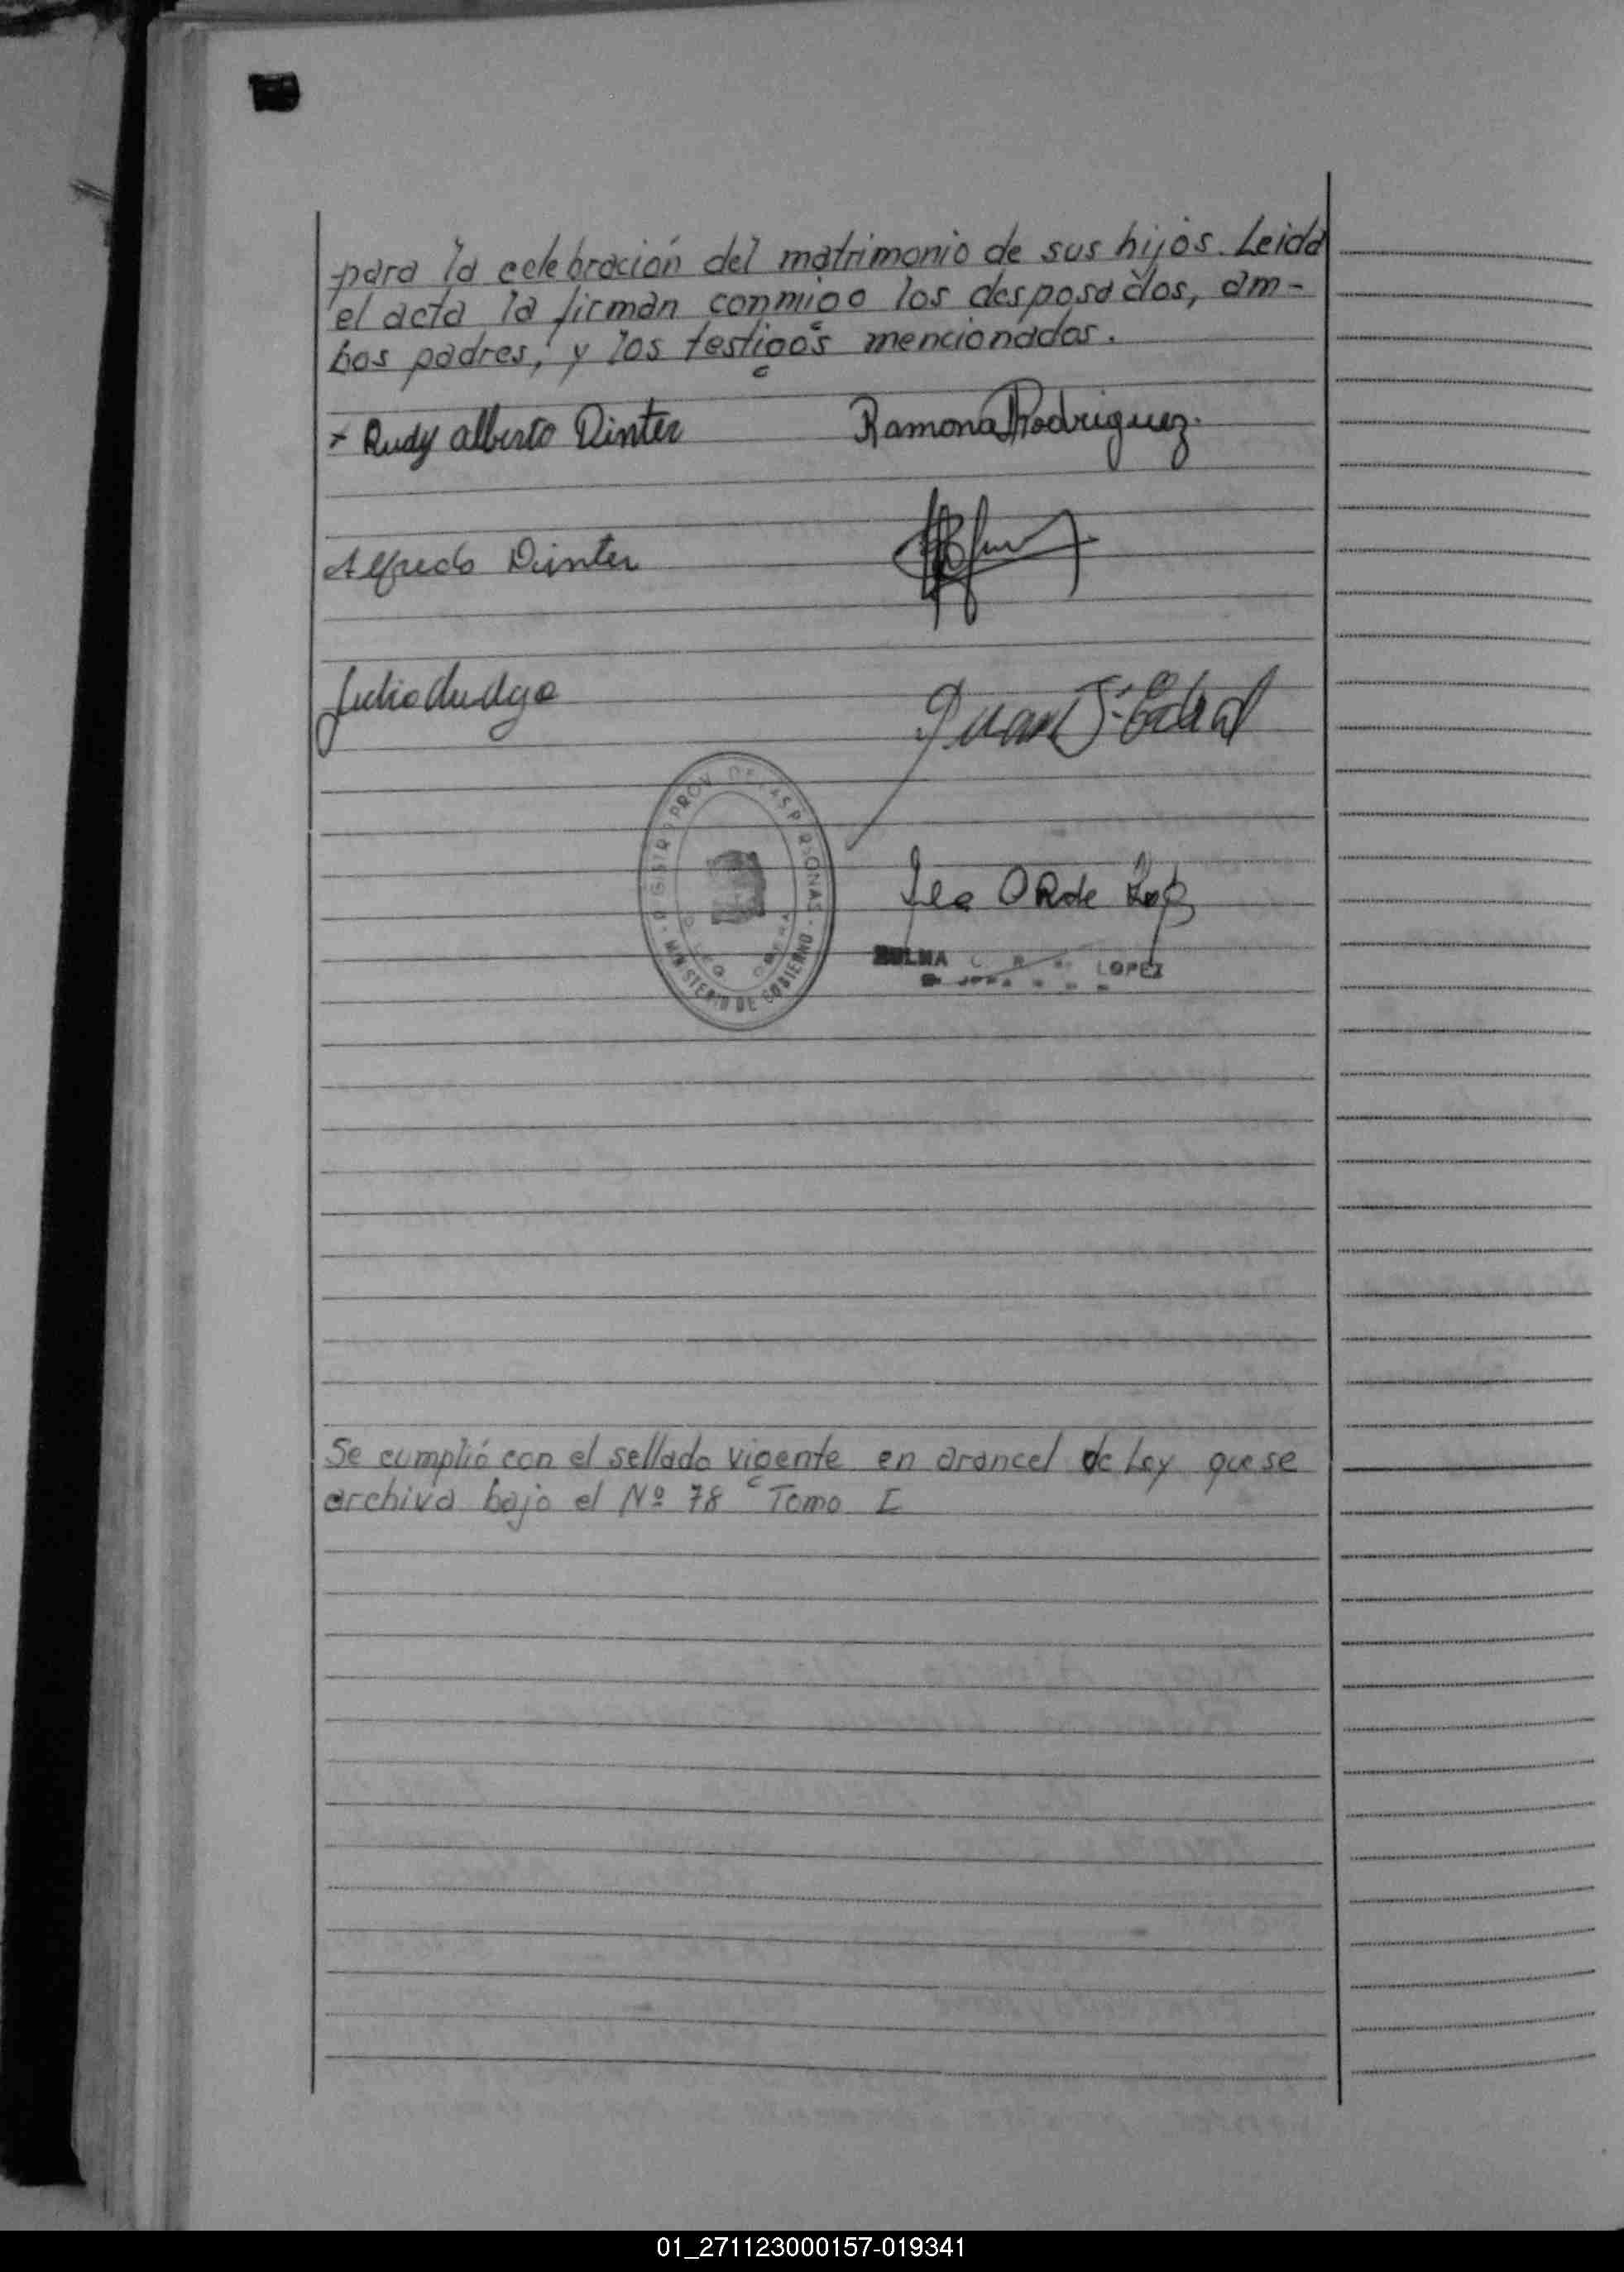 para la celebración del matrimonio de sus hijos. Leida
el acta la firman conmigo los desposados, am-
bos padres, y los testigos mencionados.
x Rudy Alberto Dinter Ramona Rodriguez.
Alfredo Dinter
Julio
Juan
PROV. DE LAS PERSONAS
MINISTERIO DE GOBIERNO
LOPEZ
Se cumplió con el sellado vigente en arancel de Ley que se
archiva bajo el Nº 78 Tomo I
01_271123000157-019341